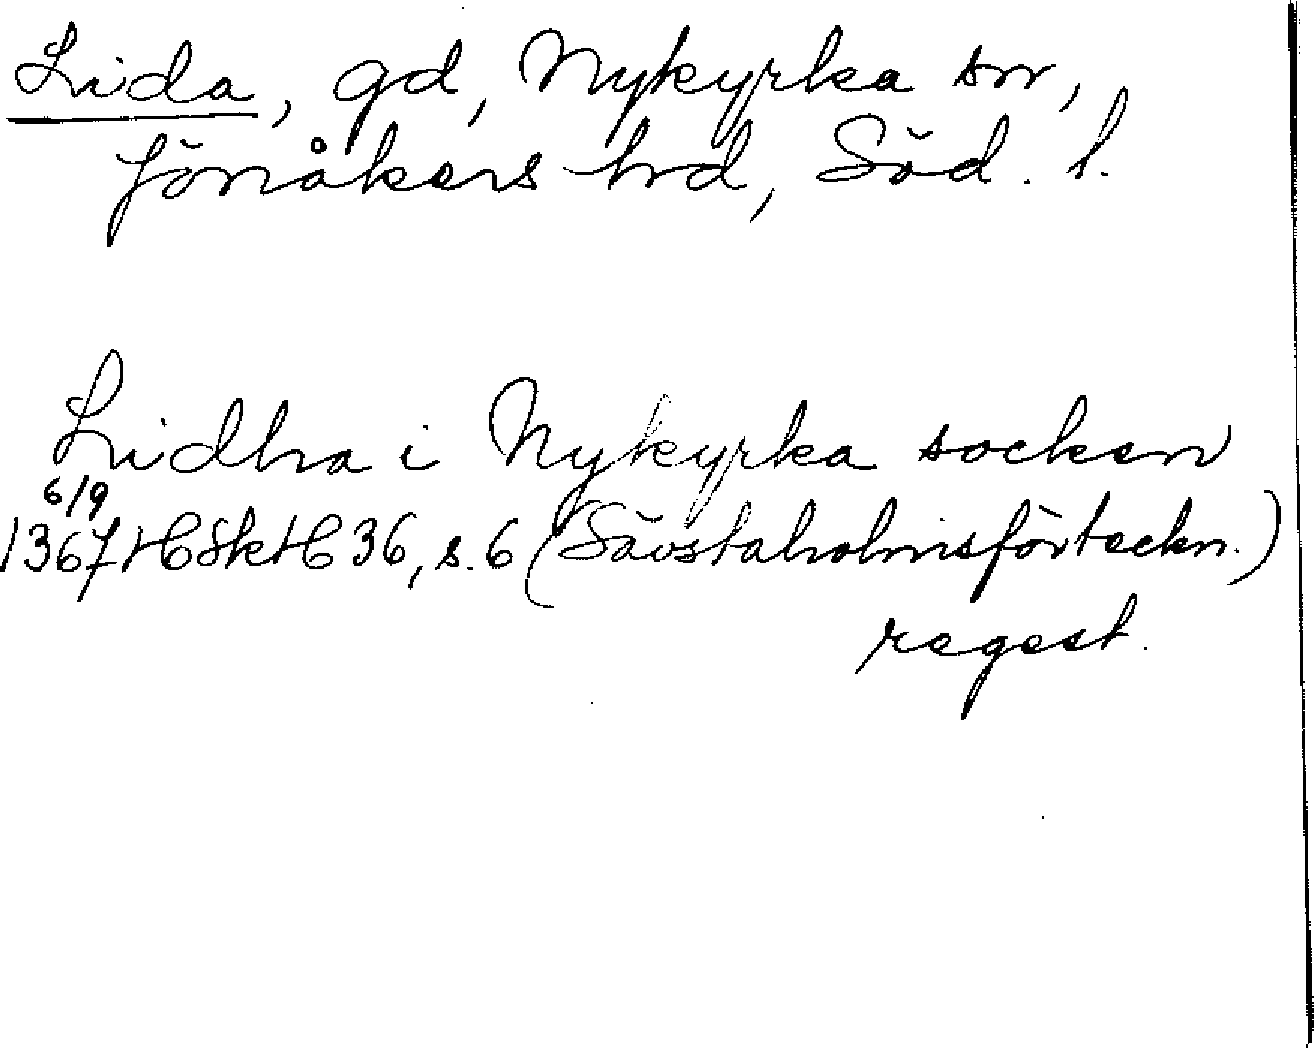 Lida, gd, Nykyrka sn,
Jönåkers hd, Söd. l.
Lidha i Nykyrka socken
6/9
1367 HSkH 36, s. 6 (Sävstaholmsförteckn.)
regest.